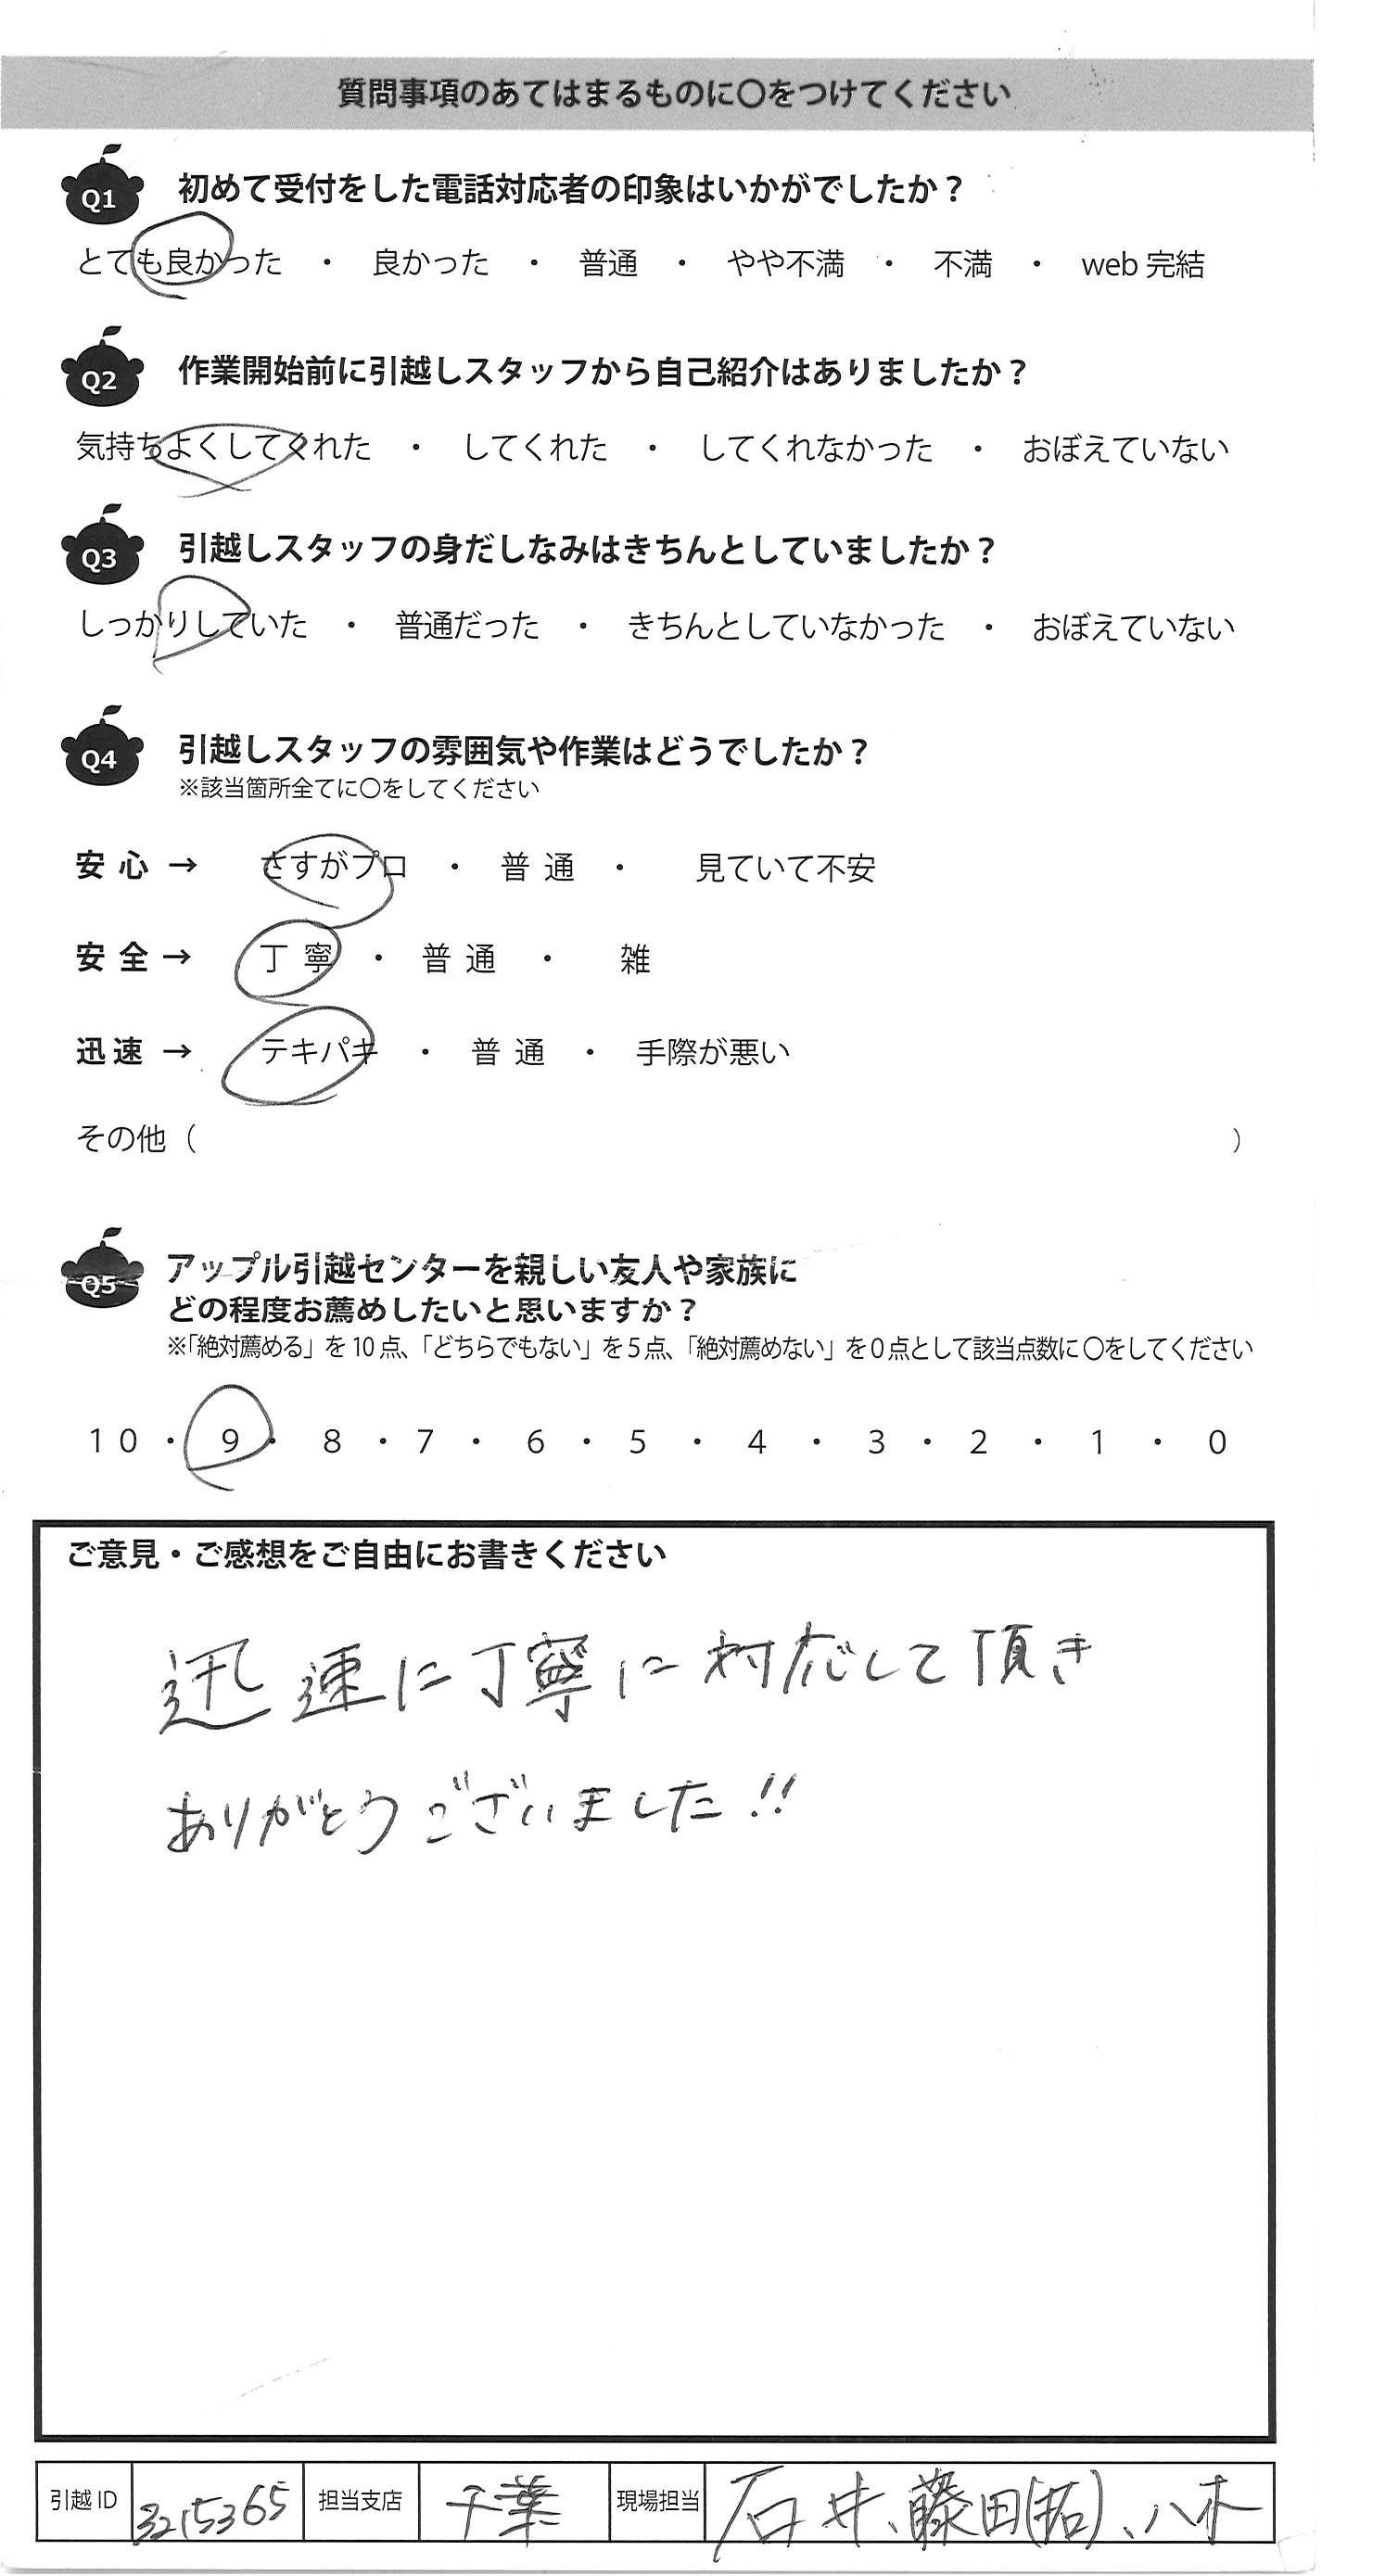 質問事項のあてはまるものに〇をつけてください
Q1 初めて受付をした電話対応者の印象はいかがでしたか？
とても良かった ・ 良かった ・ 普通 ・ やや不満 ・ 不満 ・ web 完結
Q2 作業開始前に引越しスタッフから自己紹介はありましたか？
気持ちよくしてくれた ・ してくれた ・ してくれなかった ・ おぼえていない
Q3 引越しスタッフの身だしなみはきちんとしていましたか？
しっかりしていた ・ 普通だった ・ きちんとしていなかった ・ おぼえていない
Q4 引越しスタッフの雰囲気や作業はどうでしたか？
※該当箇所全てに〇をしてください
安心 → さすがプロ ・ 普通 ・ 見ていて不安
安全 → 丁寧 ・ 普通 ・ 雑
迅速 → テキパキ ・ 普通 ・ 手際が悪い
その他（ ）
Q5 アップル引越センターを親しい友人や家族に
どの程度お薦めしたいと思いますか？
※「絶対薦める」を 10 点、「どちらでもない」を 5 点、「絶対薦めない」を 0 点として該当点数に〇をしてください
10 ・ 9 ・ 8 ・ 7 ・ 6 ・ 5 ・ 4 ・ 3 ・ 2 ・ 1 ・ 0
ご意見・ご感想をご自由にお書きください
迅速に丁寧に対応して頂き
ありがとうございました!!
引越 ID 3215365 担当支店 千葉 現場担当 石井、藤田(拓)、八木